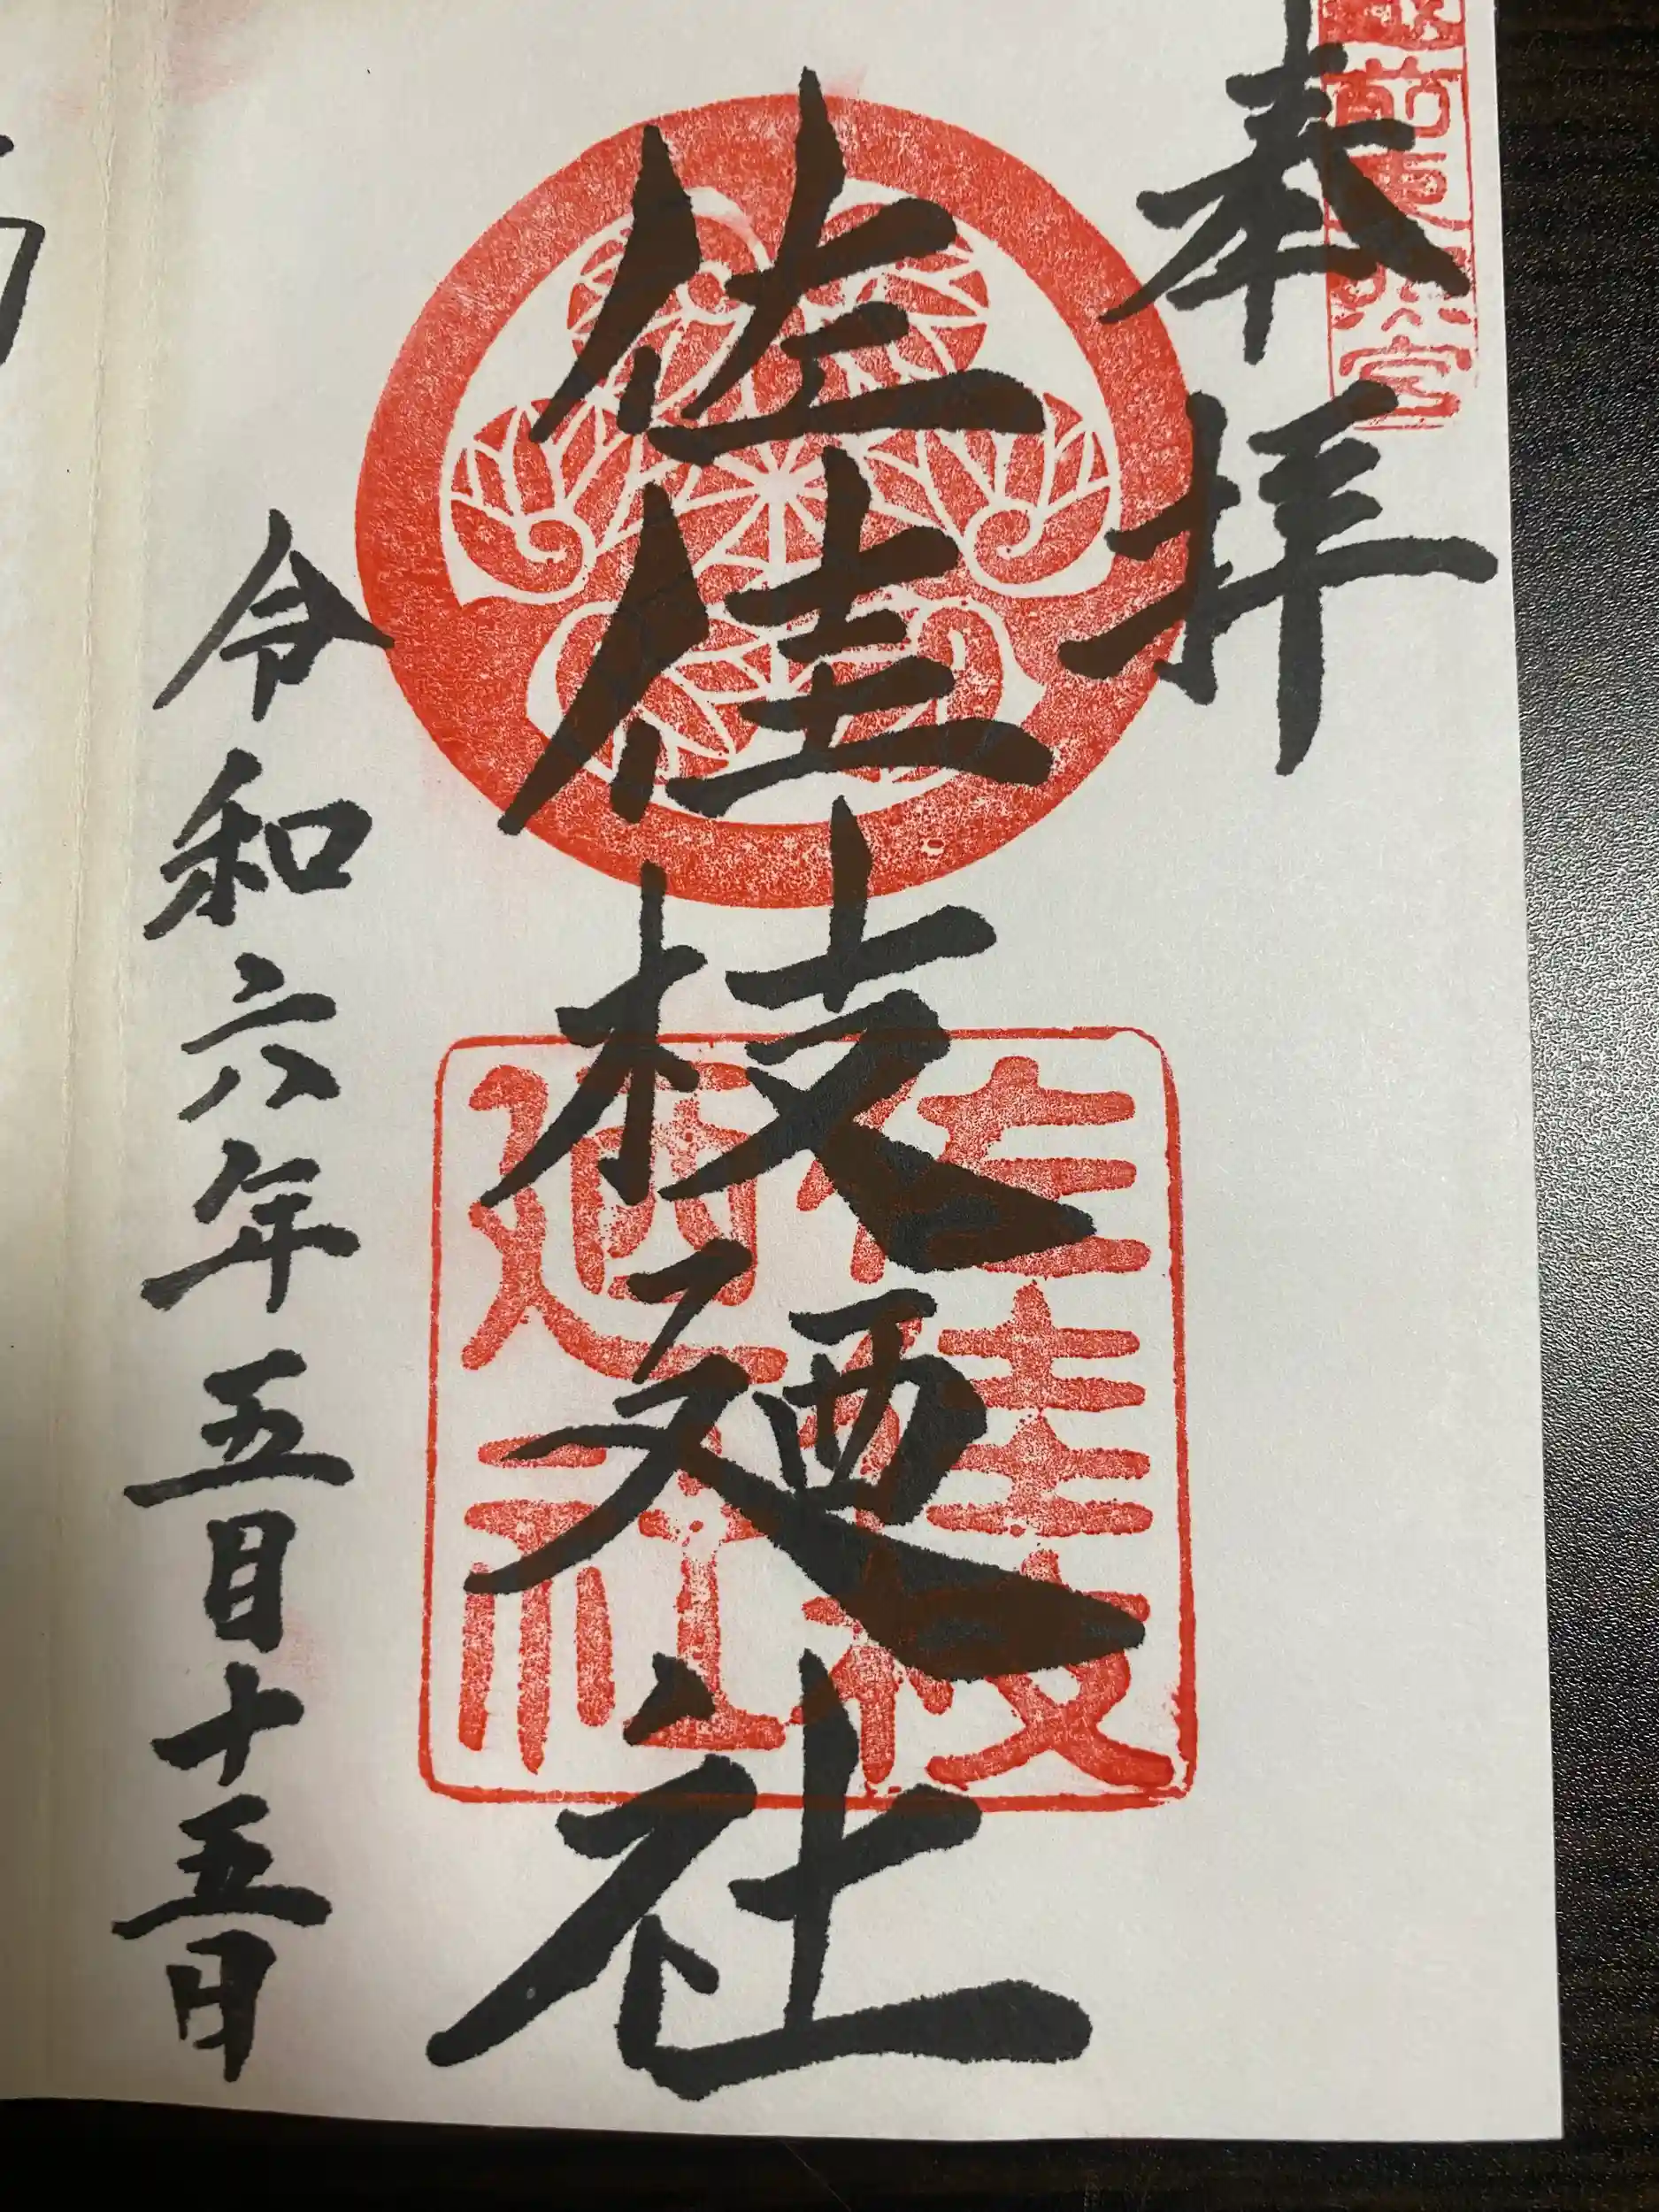 越前東照宮
奉拝
佐佳枝廼社
佐佳枝
廼社
令和六年五月十五日